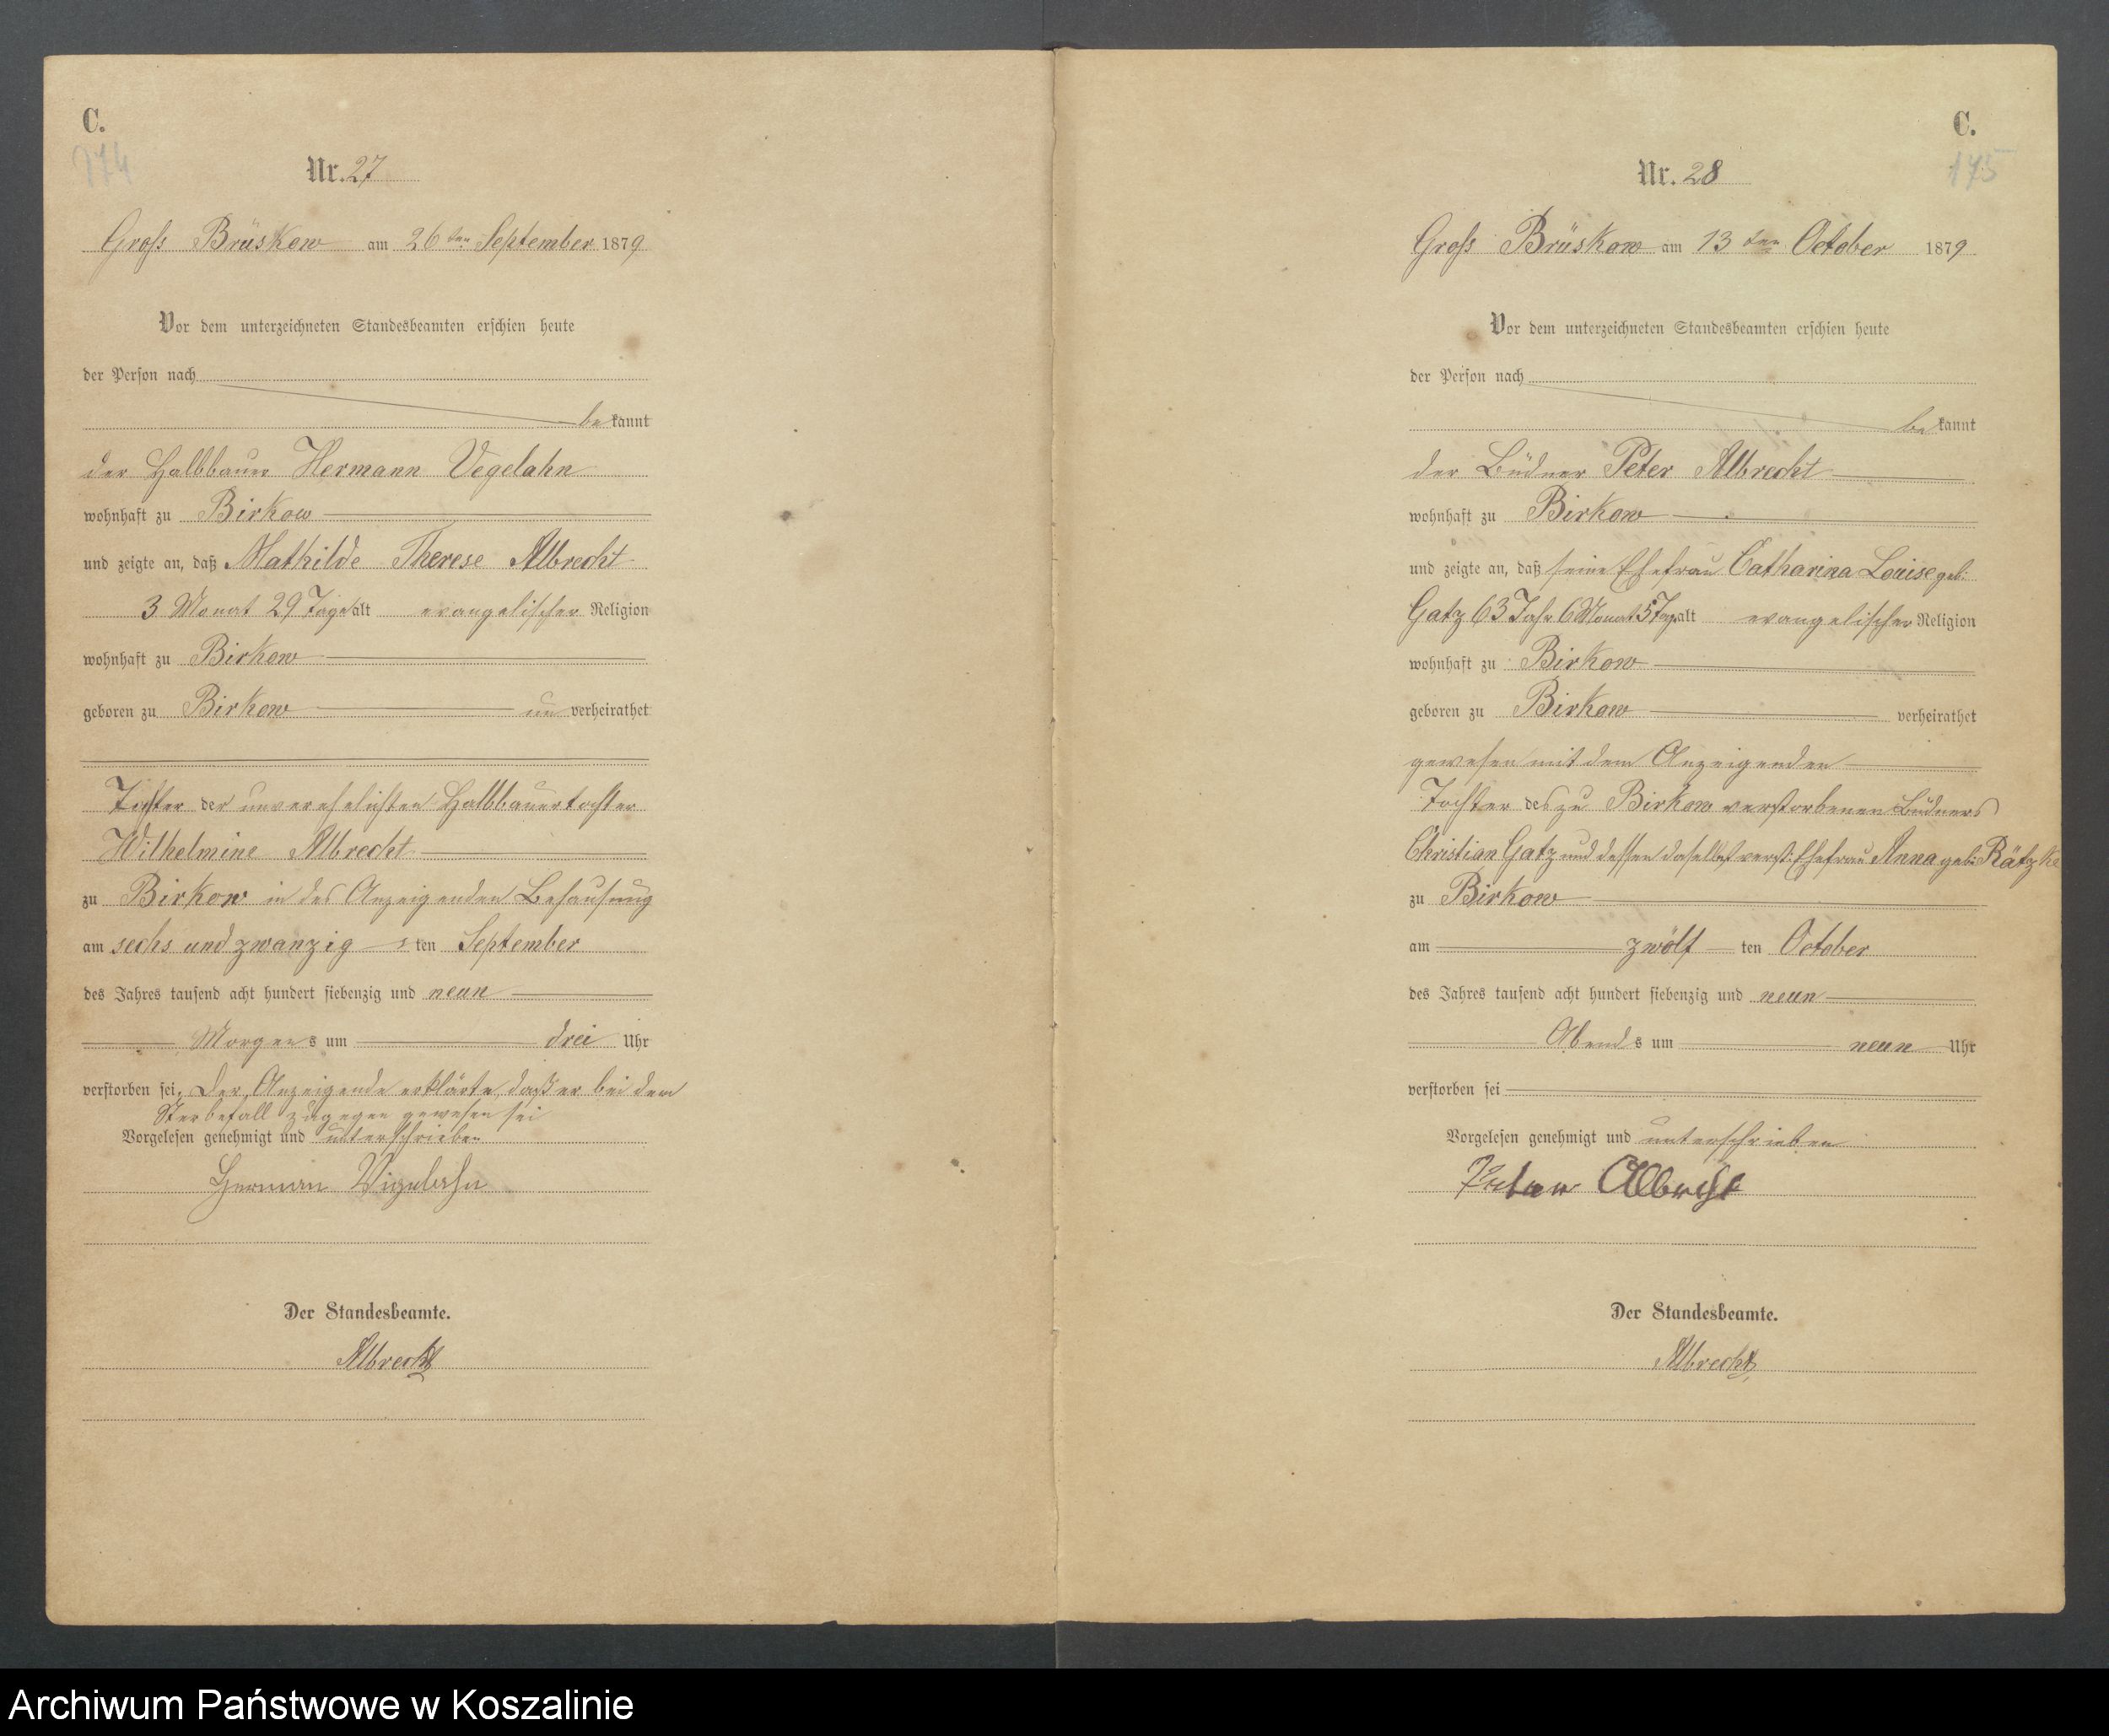 C.
174
Nr. 27
Groß Brüskow am 26ten September 1879
Vor dem unterzeichneten Standesbeamten erschien heute
der Person nach
bekannt
der Halbbauer Hermann Vegelahn
wohnhaft zu Birkow
und zeigte an, daß Mathilde Therese Albrecht
3 Monat 29 Tage alt evangelischer Religion
wohnhaft zu Birkow
geboren zu Birkow unverheirathet
Tochter der unverehelichten Halbbauertochter
Wilhelmine Albrecht
zu Birkow in des Anzeigenden Behausung
am sechs und zwanzigsten September
des Jahres tausend acht hundert siebenzig und neun
Morgens um drei Uhr
verstorben sei, der Anzeigende erklärte, daß er bei dem
Sterbefall zugegen gewesen sei
Vorgelesen genehmigt und unterschrieben
Herman Vigelahn
Der Standesbeamte.
Albrecht
C.
175
Nr. 28
Groß Brüskow am 13ten October 1879
Vor dem unterzeichneten Standesbeamten erschien heute
der Person nach
bekannt
der Büdner Peter Albrecht
wohnhaft zu Birkow
und zeigte an, daß seine Ehefrau Catharina Louise geb:
Gatz 63 Jahr 6 Monat 5 Tage alt evangelischer Religion
wohnhaft zu Birkow
geboren zu Birkow verheirathet
gewesen mit dem Anzeigenden
Tochter des zu Birkow verstorbenen Büdners
Christian Gatz und dessen daselbst verst: Ehefrau Anna geb: Rätzke
zu Birkow
am zwölften October
des Jahres tausend acht hundert siebenzig und neun
Abends um neun Uhr
verstorben sei
Vorgelesen genehmigt und unterschrieben
Peter Albrecht
Der Standesbeamte.
Albrecht
Archiwum Państwowe w Koszalinie